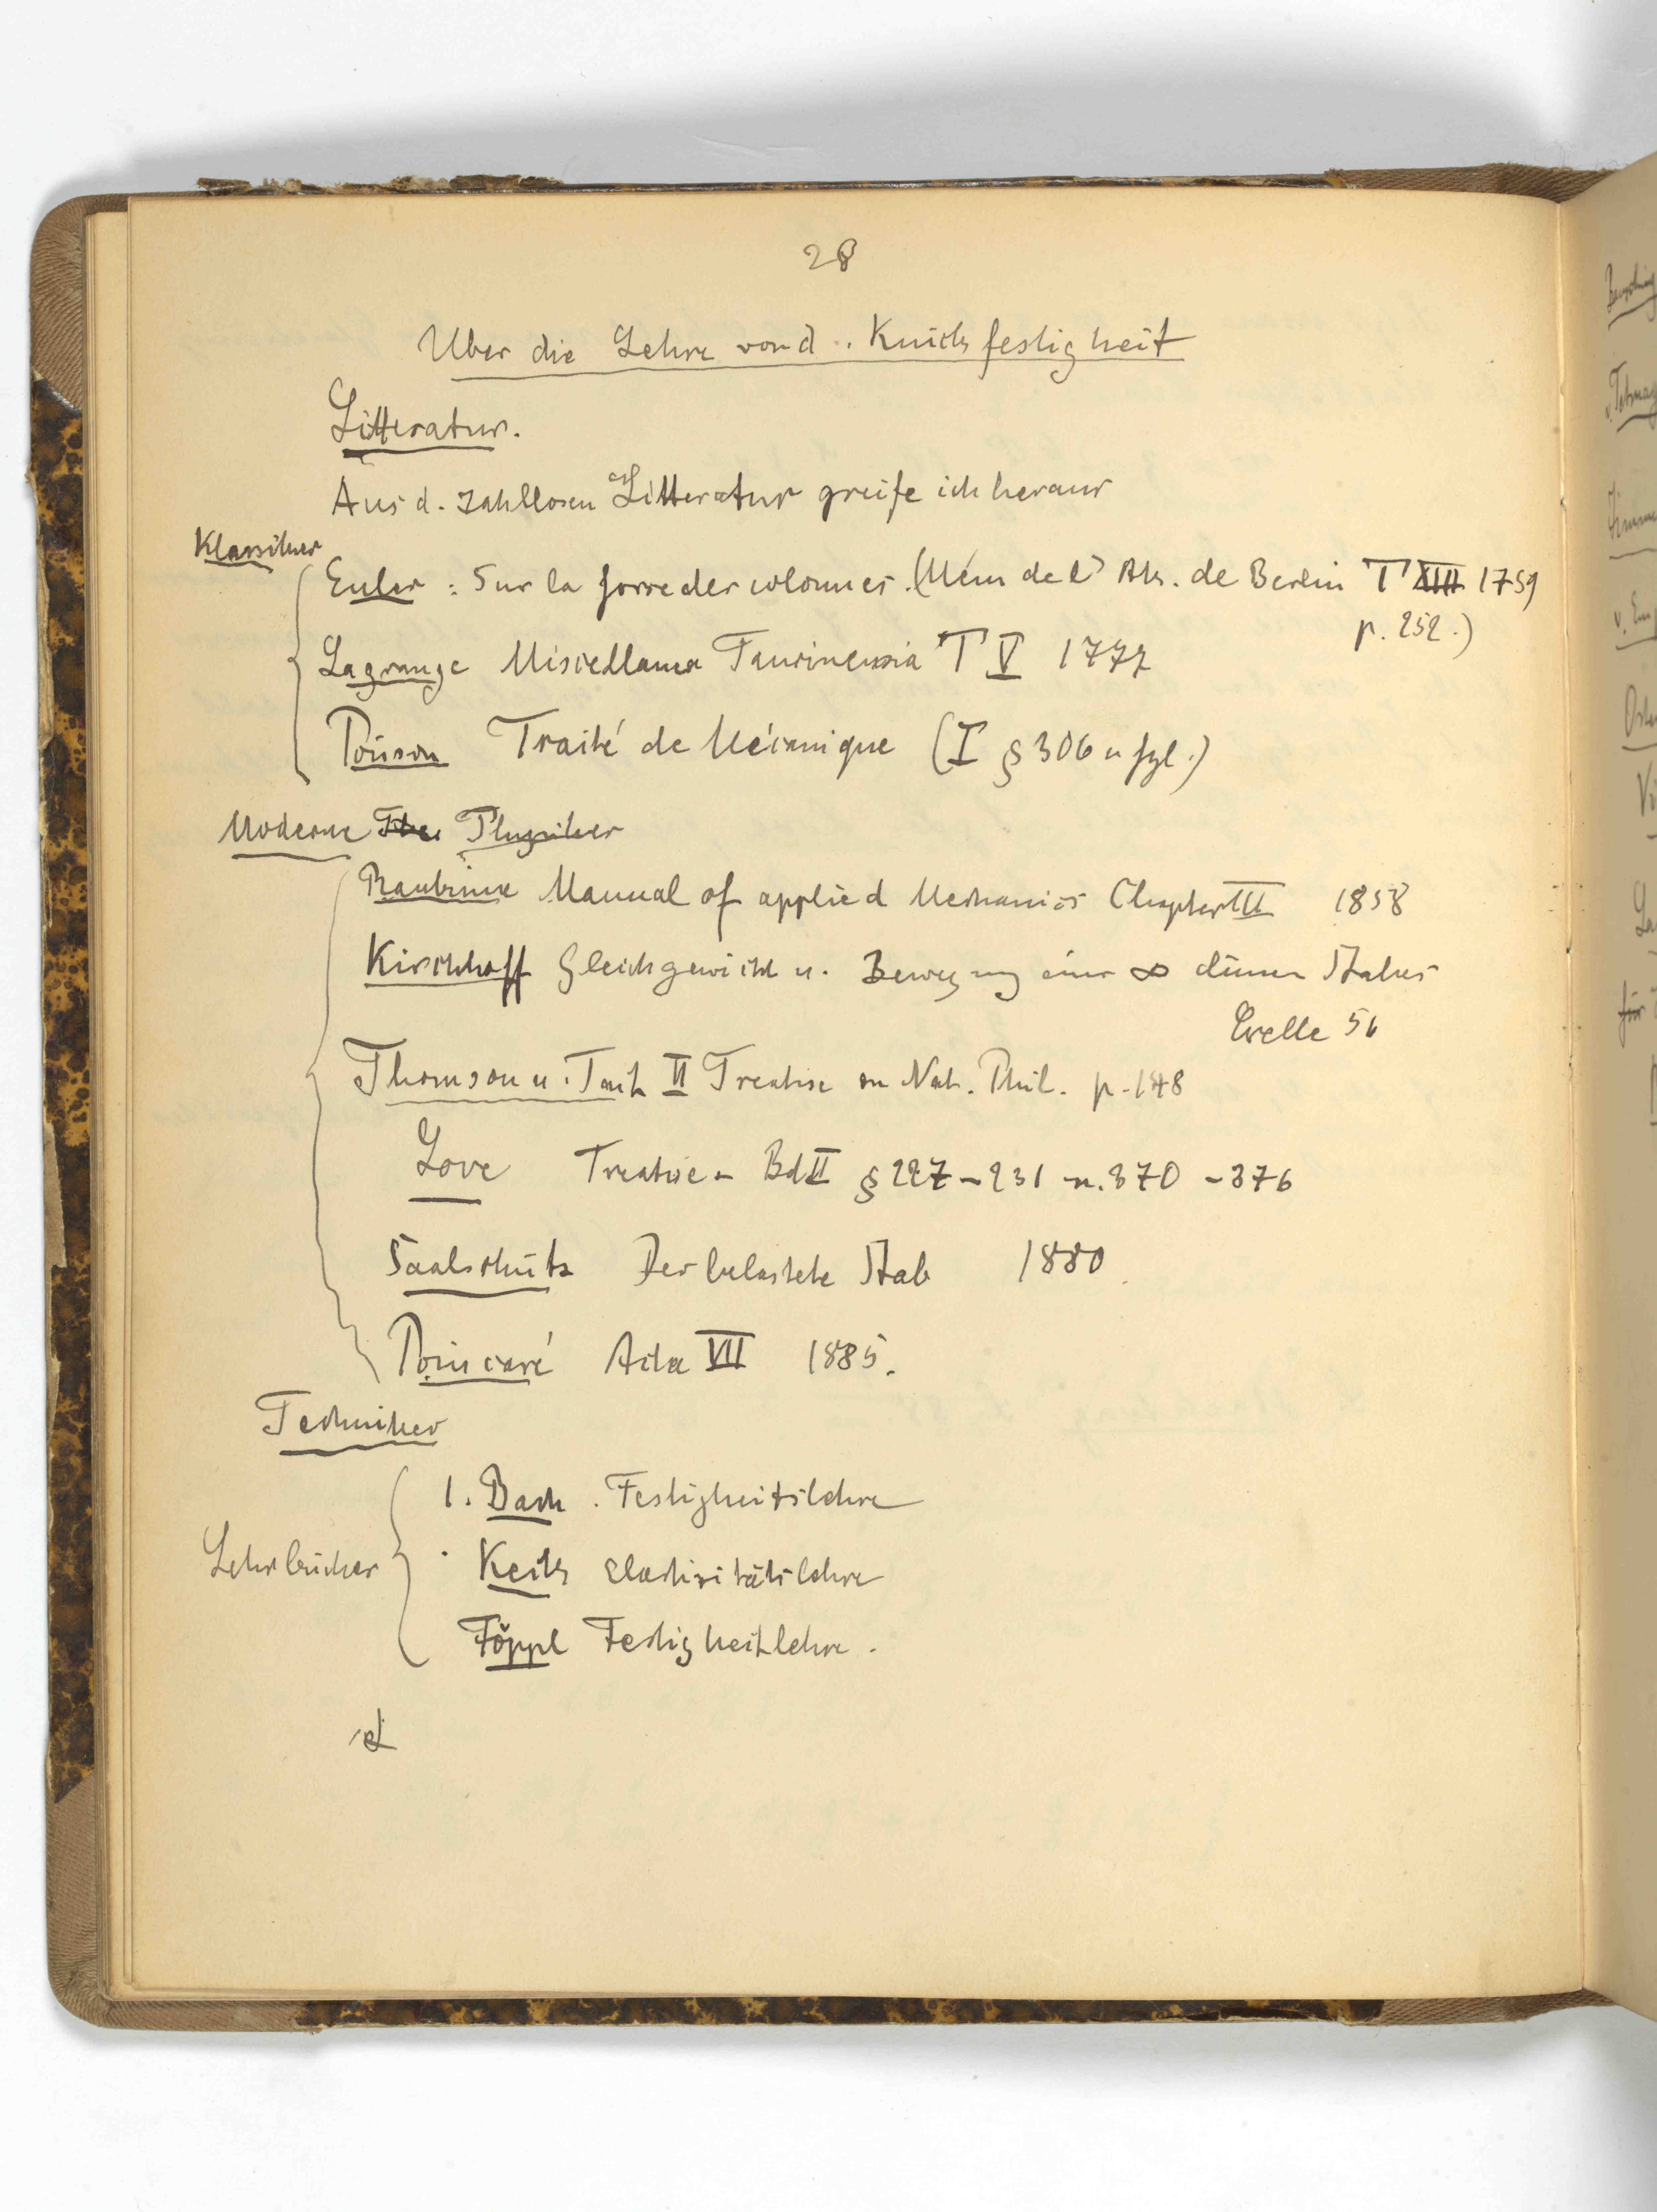 28
Über die Lehre von d. Knickfestigkeit
Litteratur.
Aus d. zahllosen Litteratur greife ich heraus
Klassiker
Euler : Sur la force des colonnes. (Mém de l' Ak. de Berlin T XIII 1759
p. 252.)
Lagrange Miscellanea Taurinensia T V 1777
Poisson Traité de Mécanique (I § 306 u fgl.)
Moderne Physiker
Rankine Manual of applied Mechanics Chapter III 1858
Kirchhoff Gleichgewicht u. Bewegung eines ∞ dünnen Stabes
Crelle 56
Thomson u. Tait II Treatise on Nat. Phil. p. 148
Love Treatise - Bd II § 227 - 231 u. 370 - 376
Saalschütz Der belastete Stab 1880
Poincaré Acta VII 1885.
Techniker
1. Bach. Festigkeitslehre
Lehrbücher
Keck Elasticitätslehre
Föppl Festigkeitlehre.